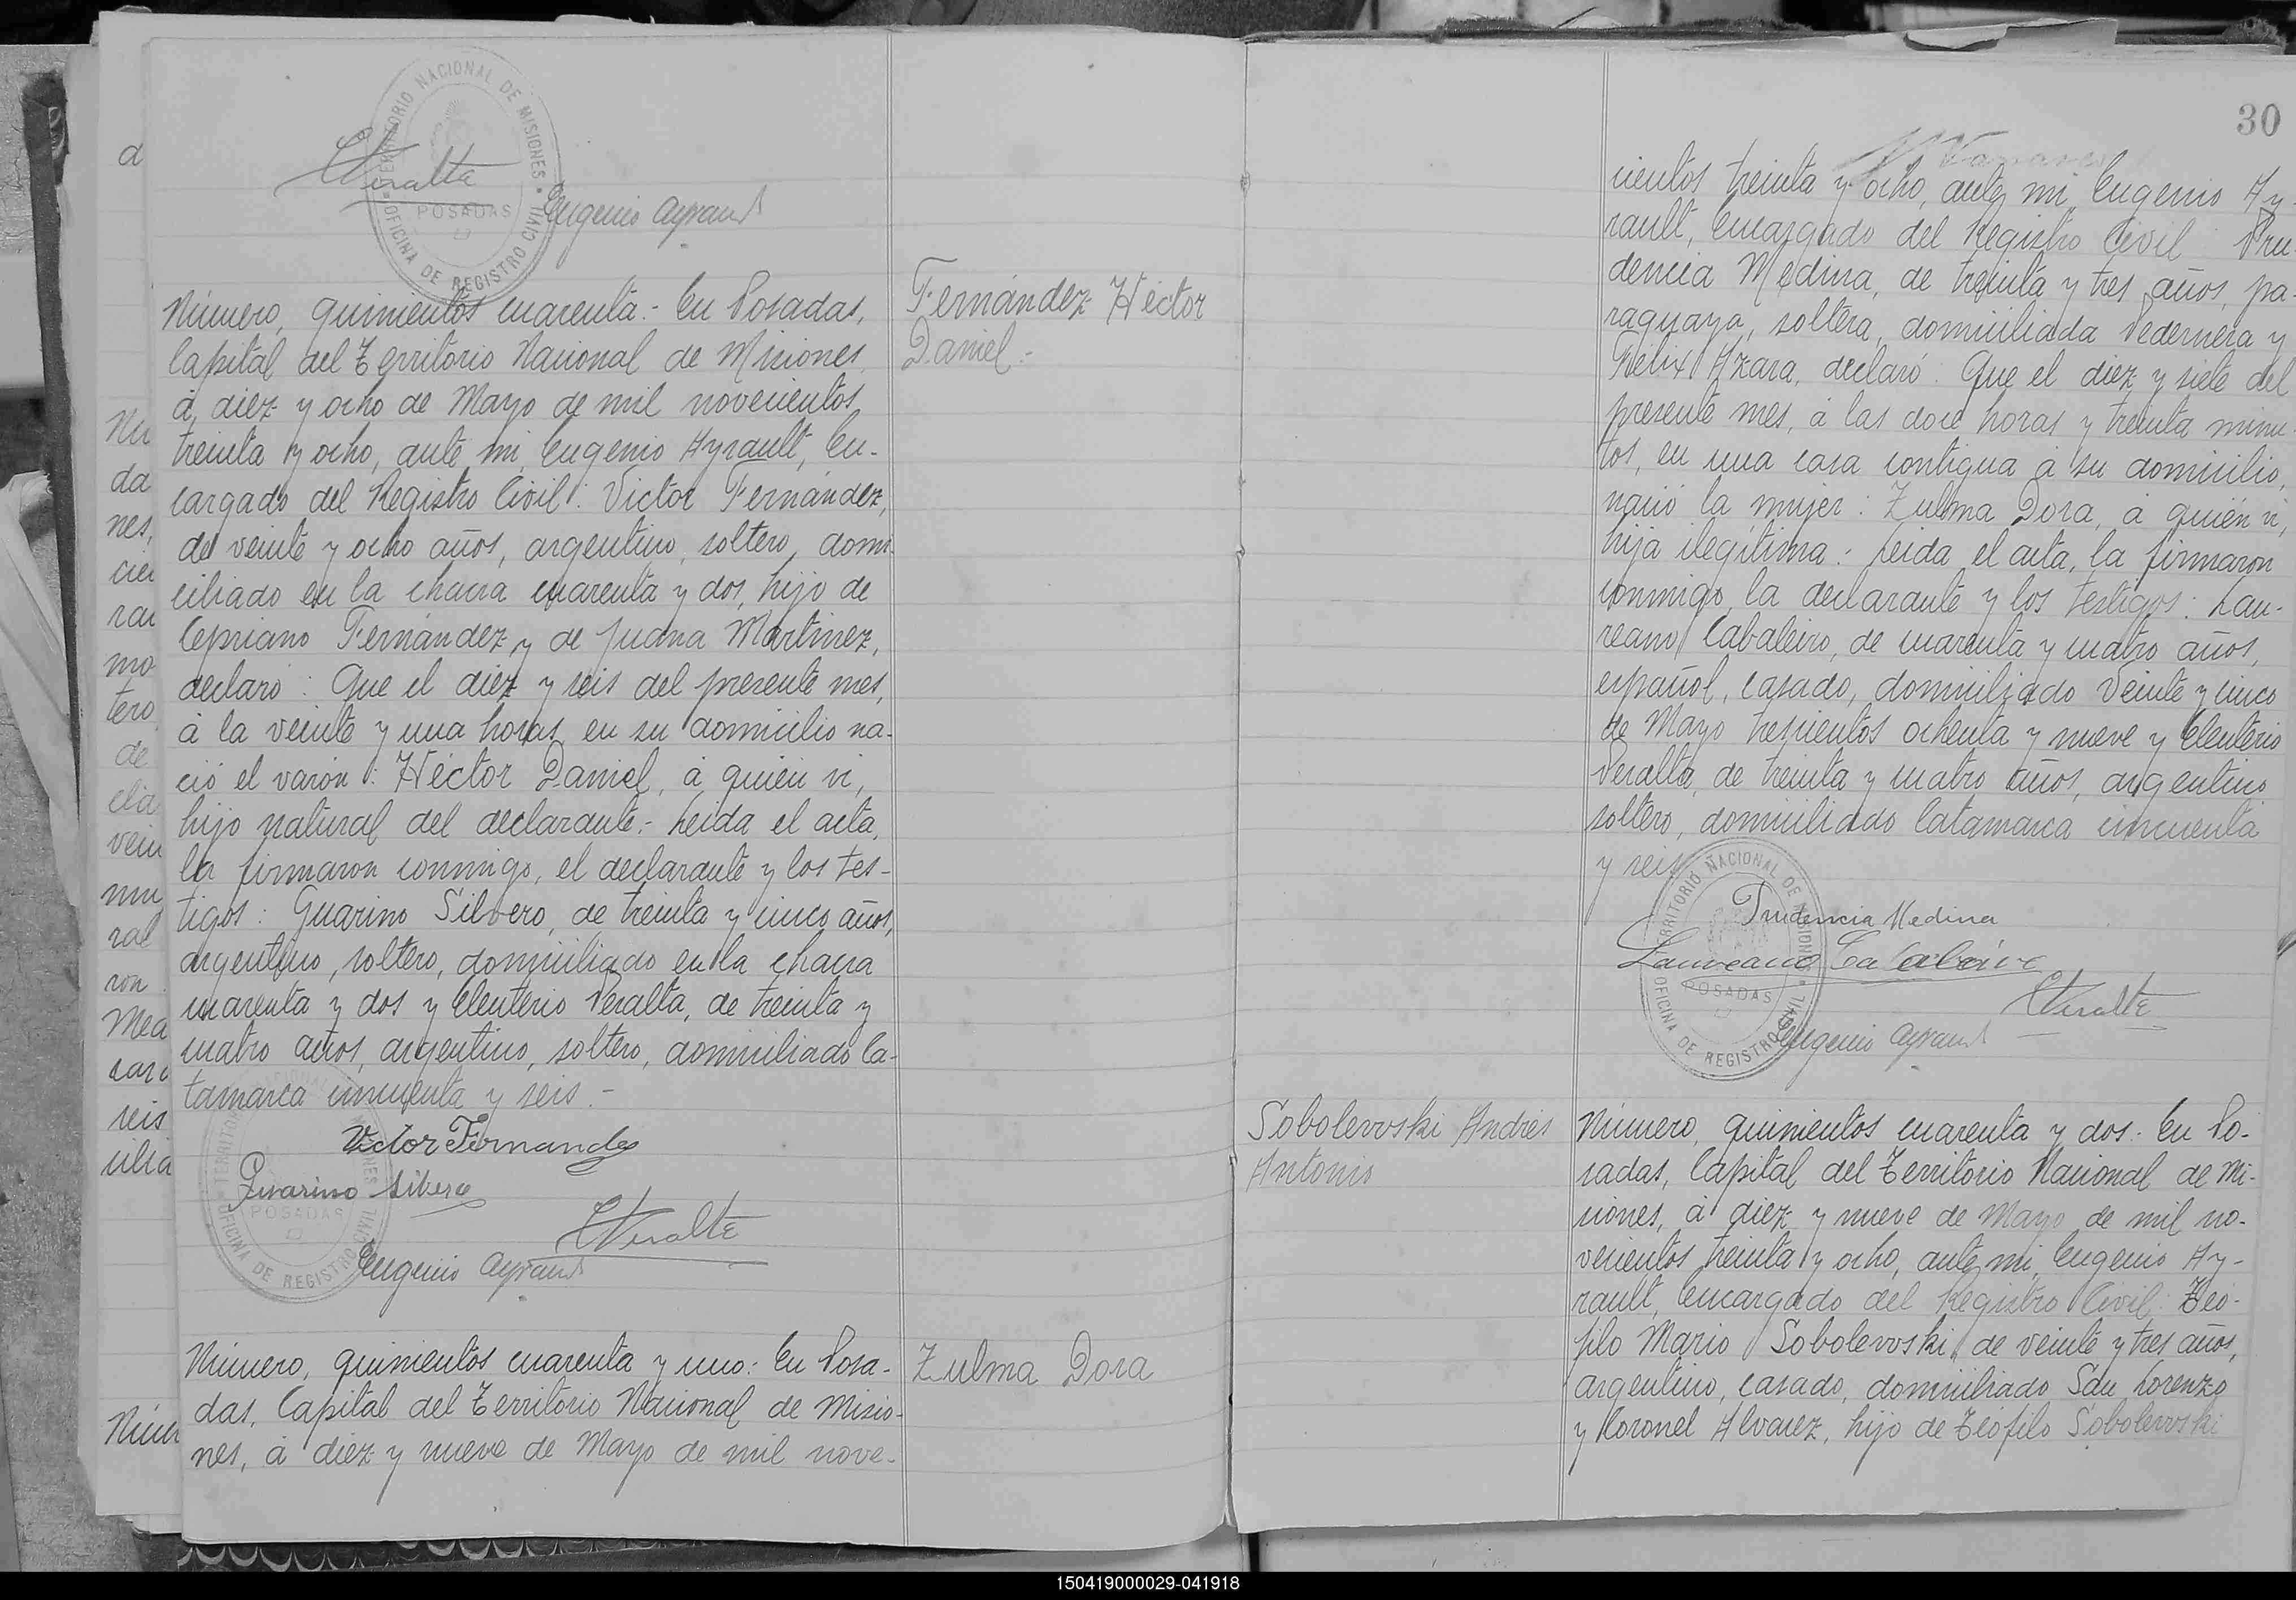 TERRITORIO NACIONAL DE MISIONES
POSADAS
OFICINA DE REGISTRO CIVIL
EPeralta
Eugenio Ayrault
Número, quinientos cuarenta.- En Posadas,
Capital del Territorio Nacional de Misiones,
á diez y ocho de Mayo de mil novecientos
treinta y ocho, ante mi, Eugenio Ayrault, En-
cargado del Registro Civil: Victor Fernández,
de veinte y ocho años, argentino, soltero, domi-
ciliado en la chacra cuarenta y dos, hijo de
Cepriano Fernández y de Juana Martinez,
declaró: Que el diez y seis del presente mes,
á la veinte y una horas en su domicilio na-
ció el varón: Héctor Daniel, á quién vi,
hijo natural del declarante.- Leida el acta,
la firmaron conmigo, el declarante y los tes-
tigos: Guarino Silvero, de treinta y cinco años,
argentino, soltero, domiciliado en la chacra
cuarenta y dos y Eleuterio Peralta, de treinta y
cuatro años, argentino, soltero, domiciliado Ca-
tamarca cincuenta y seis.-
Victor Fernandes
Guarino Silvero
EPeralta
Eugenio Ayrault
TERRITORIO NACIONAL DE MISIONES
POSADAS
OFICINA DE REGISTRO CIVIL
Número, quinientos cuarenta y uno: En Posa-
das, Capital del Territorio Nacional de Misio-
nes, á diez y nueve de Mayo de mil nove-
Fernández Héctor
Daniel.-
Zulma Dora
30
cientos treinta y ocho, ante mi, Eugenio Ay-
rault, Encargado del Registro Civil: Pru-
dencia Medina, de treinta y tres años, pa-
raguaya, soltera, domiciliada Pedernera y
Felix Azara, declaró: Que el diez y siete del
presente mes, á las doce horas y treinta minu-
tos, en una casa contigua á su domicilio,
nació la mujer: Zulma Dora, á quién vi,
hija ilegitima: Leida el acta, la firmaron
conmigo, la declarante y los testigos: Lau-
reano Cabaleiro, de cuarenta y cuatro años,
español, casado, domiciliado Veinte y cinco
de Mayo trescientos ochenta y nueve y Eleuterio
Peralta, de treinta y cuatro años, argentino
soltero, domiciliado Catamarca cincuenta
y seis
TERRITORIO NACIONAL DE MISIONES
POSADAS
OFICINA DE REGISTRO CIVIL
Prudencia Medina
Laureano Cabaleiro
EPeralta
Eugenio Ayrault
Sobolevvski Andrés
Antonio
Número, quinientos cuarenta y dos: En Po-
sadas, Capital del Territorio Nacional de Mi-
siones, á diez y nueve de Mayo de mil no-
vecientos treinta y ocho, ante mi, Eugenio Ay-
rault, Encargado del Registro Civil: Teó-
filo Mario Sobolevvski, de veinte y tres años,
argentino, casado, domiciliado San Lorenzo
y Koronel Alvarez, hijo de Teófilo Sobolevvski
150419000029-041918